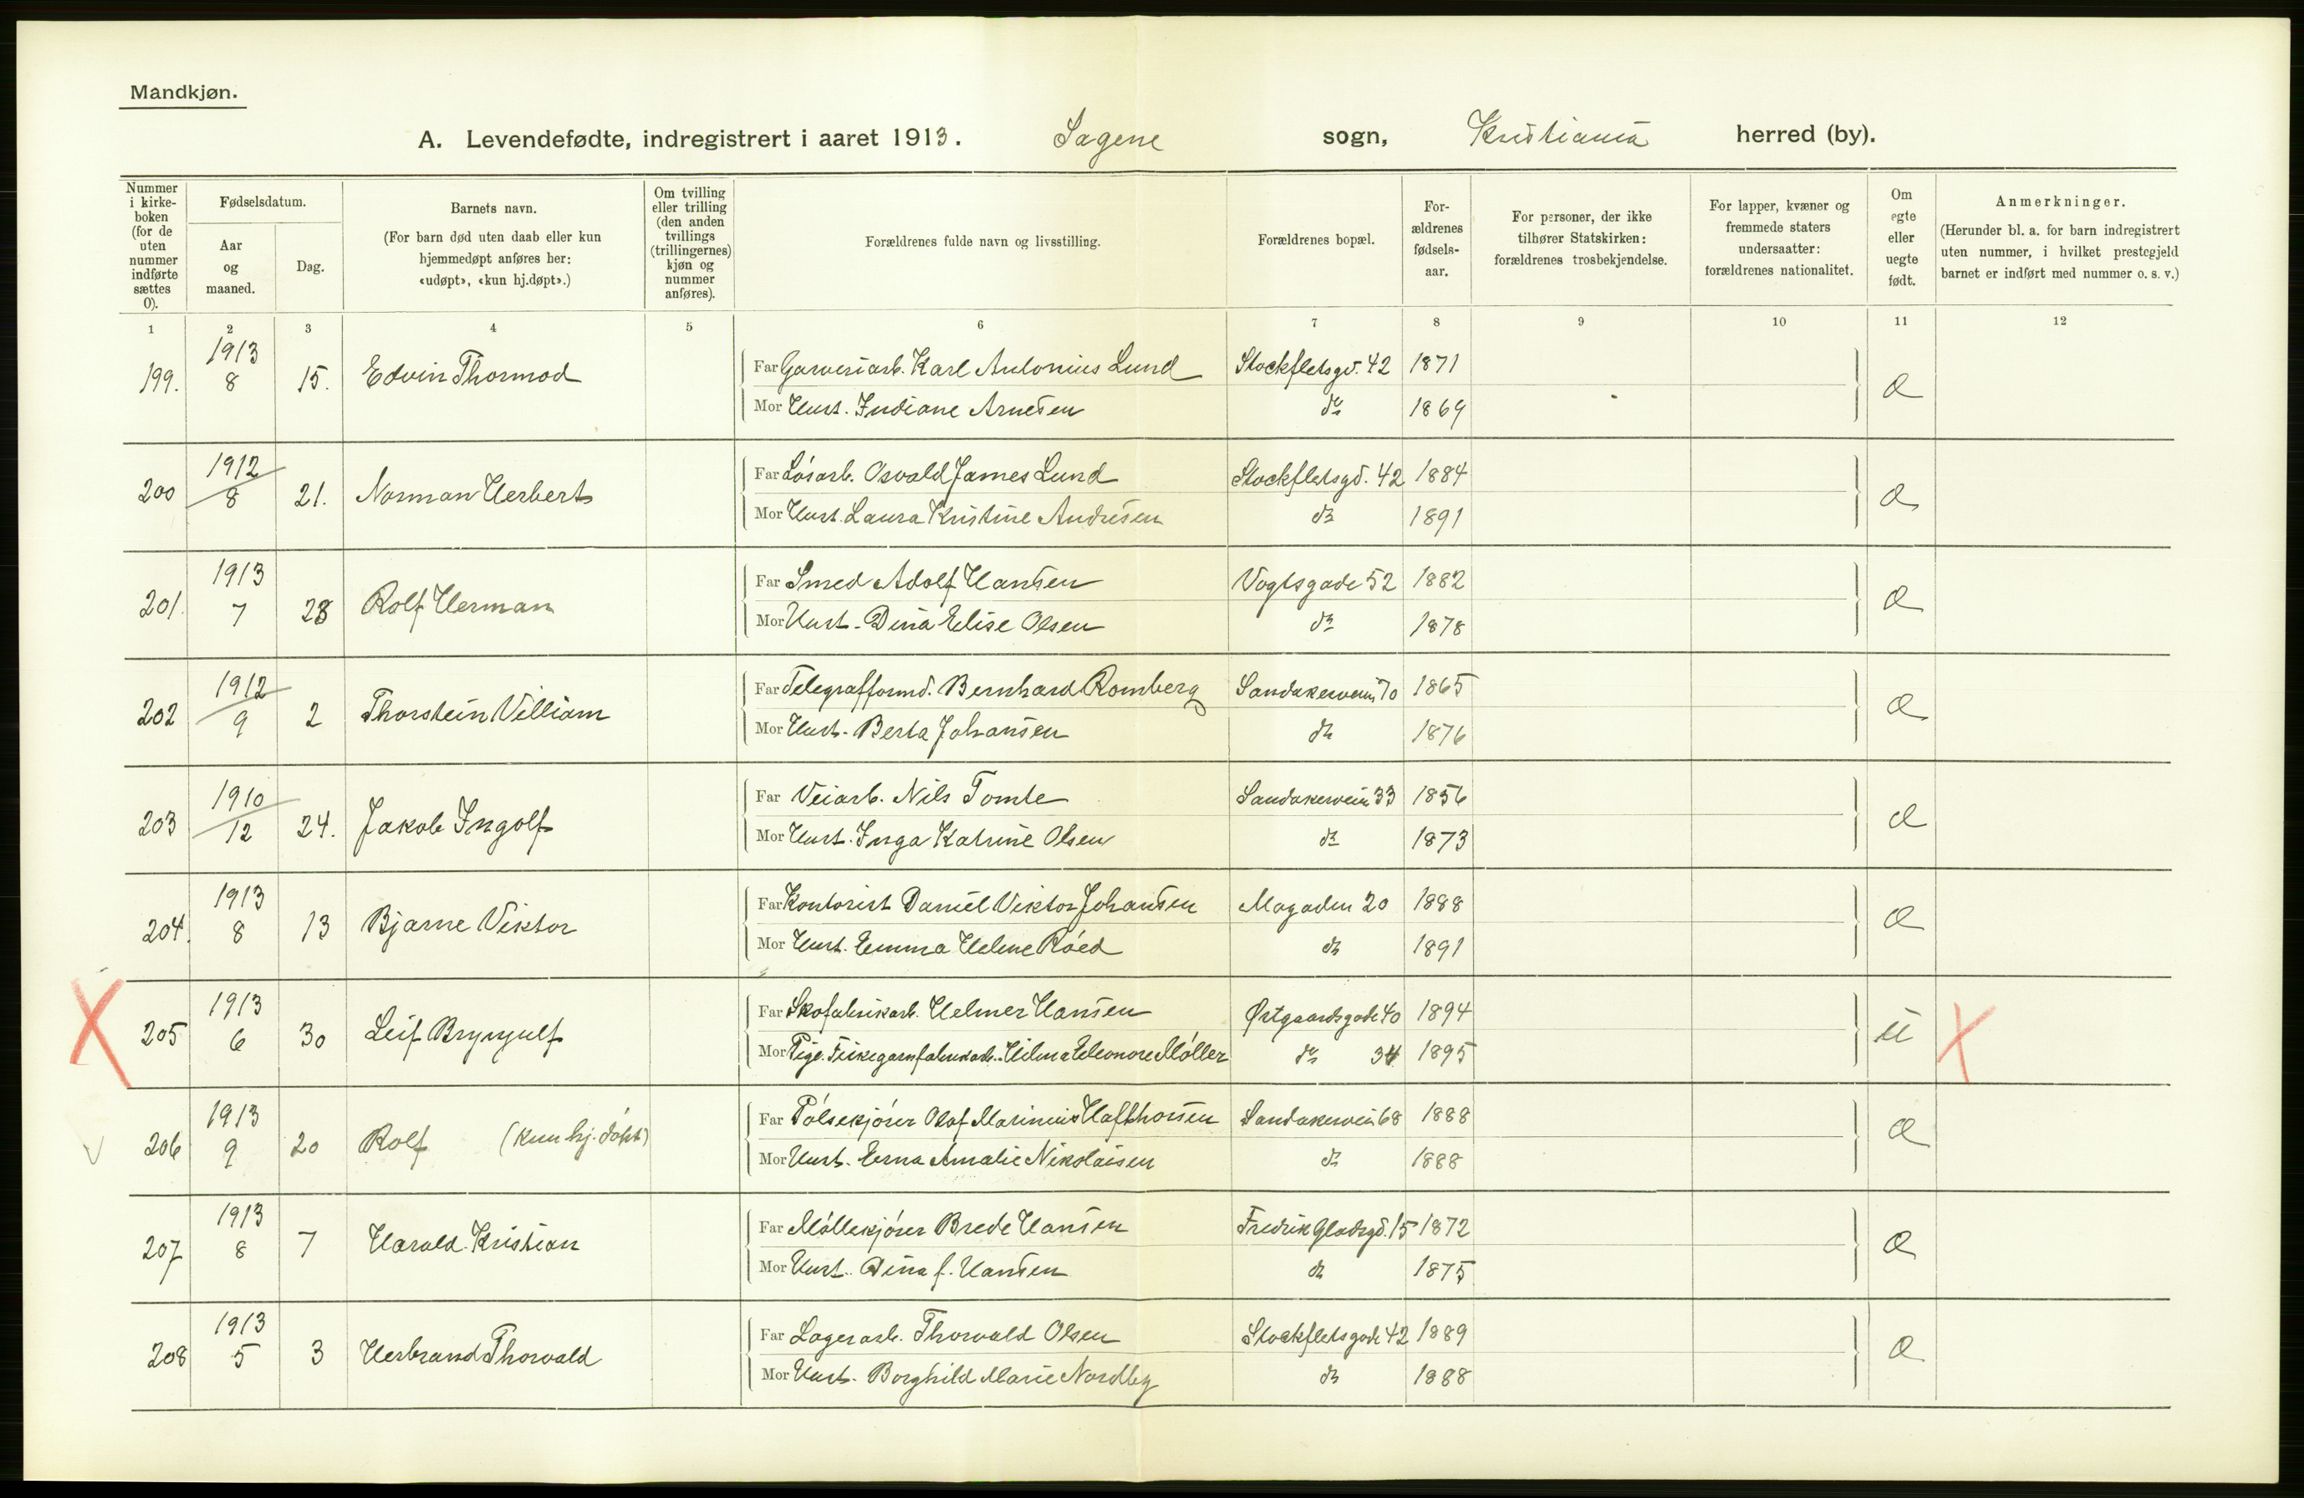 Mandkjøn.
A. Levendefødte, indregistrert i aaret 1913. Sagene sogn, Kristiania herred (by).
Nummer i kirke-boken (for de uten nummer indførte sættes 0).
Fødselsdatum.
Aar og maaned.
Dag.
Barnets navn.
(For barn død uten daab eller kun hjemmedøpt anføres her: «udøpt», «kun hj.døpt».)
Om tvilling eller trilling (den anden tvillings (trillingernes) kjøn og nummer anføres).
Forældrenes fulde navn og livsstilling.
Forældrenes bopæl.
For-ældrenes fødsels-aar.
For personer, der ikke tilhører Statskirken: forældrenes trosbekjendelse.
For lapper, kvæner og fremmede staters undersaatter: forældrenes nationalitet.
Om egte eller uegte født.
Anmerkninger.
(Herunder bl. a. for barn indregistrert uten nummer, i hvilket prestegjeld barnet er indført med nummer o. s. v.)
1 2 3 4 5 6 7 8 9 10 11 12
199. 1913 8 15. Edvin Thormod Far Garveriarb. Karl Antonius Lund Stockfletsgd. 42 1871 Æ
Mor Hust. Indiane Arnesen do 1869
200 1912 8 21. Norman Herbert Far Løsarb. Osvald James Lund Stockfletsgd. 42 1884 Æ
Mor Hust. Laura Kristine Andresen do 1891
201. 1913 7 28 Rolf Herman Far Smed Adolf Hansen Vogtsgade 52 1882 Æ
Mor Hust. Dina Elise Olsen do 1878
202 1912 9 2 Thorstein Villiam Far Telegrafformd. Bernhard Romberg Sandakerveien 70 1865 Æ
Mor Hust. Berta Johansen do 1876
203 1910 12 24. Jakob Ingolf Far Veiarb. Nils Tomte Sandakerveien 33 1856 Æ
Mor Hust. Inga Katrine Olsen do 1873
204. 1913 8 13 Bjarne Viktor Far Kontorist Daniel Viktor Johansen Magaden 20 1888 Æ
Mor Hust. Emma Helene Røed do 1891
X 205 1913 6 30 Leif Brynjulf Far Skofabrikarb. Helmer Hansen Østgaardsgade 40 1894 U X
Mor Pige. Fiskegarnfabrikarb. Hilma Eleonore Møller do 34 1895
206 1913 9 20 Rolf (kun hj. døpt) Far Pølsekjører Olaf Marinius Hafthorsen Sandakervei 68 1888 Æ
Mor Hust. Erna Amalie Nikolaisen do 1888
207 1913 8 7 Harald Kristian Far Møllekjører Brede Hansen Fredrik Gladsgd. 15 1872 Æ
Mor Hust. Dina f. Hansen do 1875
208 1913 5 3 Herbrand Thorvald Far Lagerarb. Thorvald Olsen Stockfletsgade 42 1889 Æ
Mor Hust. Borghild Marie Nordby do 1888